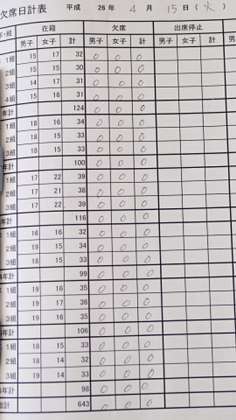 欠席日計表 平成 26年 4月 15日(火)
年・組 在籍 欠席 出席停止
男子 女子 計 男子 女子 計 男子 女子 計 男
1組 15 17 32 0 0 0
2組 15 15 30 0 0 0
3組 14 17 31 0 0 0
4組 15 16 31 0 0 0
年計 124 0 0 0
1組 18 16 34 0 0 0
2組 18 15 33 0 0 0
3組 18 15 33 0 0 0
年計 100 0 0 0
1組 17 22 39 0 0 0
2組 17 21 38 0 0 0
3組 17 22 39 0 0 0
年計 116 0 0 0
1組 16 16 32 0 0 0
2組 19 15 34 0 0 0
3組 18 15 33 0 0 0
年計 99 0 0 0
1組 19 16 35 0 0 0
2組 19 17 36 0 0 0
3組 19 16 35 0 0 0
年計 106 0 0 0
1組 18 15 33 0 0 0
2組 18 14 32 0 0 0
3組 19 14 33 0 0 0
年計 98 0 0 0
総計 643 0 0 0